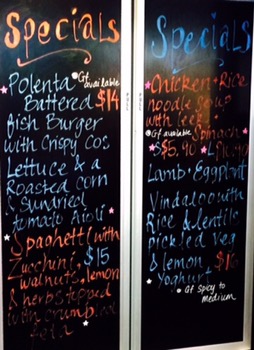 Specials
Polenta
Gf available
Battered $14
fish Burger
with Crispy Cos
Lettuce & a
Roasted corn
& Sundried
tomato Aioli
Spaghetti with
Zucchini, $15
walnuts, lemon
& herbs topped
with crumbed
feta
Specials
Chicken & Rice
noodle Soup
with leek &
Gf available Spinach
$5.90
Lamb & Eggplant
Vindaloo with
Rice & lentils
pickled veg
& lemon $16
Yoghurt
Gf spicy to
medium